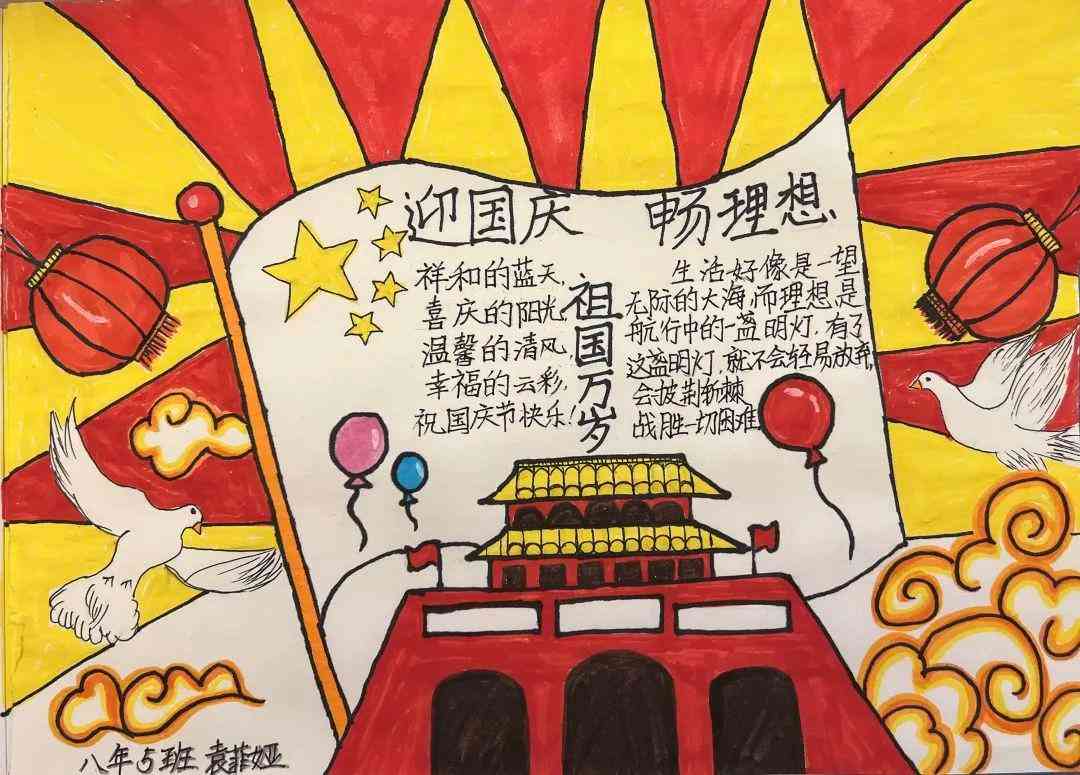 迎国庆 畅理想
祥和的蓝天,
喜庆的阳光,
温馨的清风,
幸福的云彩,
祝国庆节快乐!
祖国万岁
生活好像是一望
无际的大海,而理想是
航行中的一盏明灯.有了
这盏明灯,就不会轻易放弃,
会披荆斩棘
战胜一切困难.
八年5班 袁菲娅